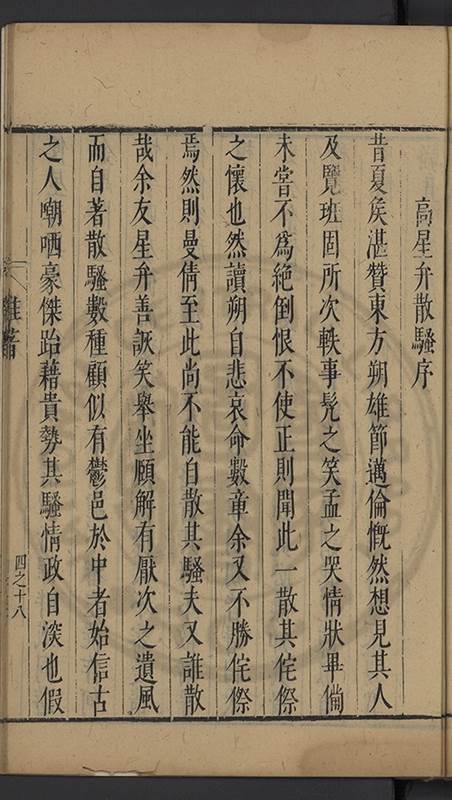 高星弁散騷序
昔夏矦湛贊東方朔雄節邁倫慨然想見其人
及覽班固所次軼事髠之笑孟之哭情狀畢俻
未嘗不爲絶倒恨不使正則聞此一散其侘傺
之懷也然讀朔自悲哀命數章余又不勝侘傺
焉然則曼倩至此尚不能自散其騷夫又誰散
哉余友星弁善詼笑舉坐頤解有厭次之遺風
而自著散騷數種顧似有鬱邑於中者始信古
之人嘲哂豪傑跆藉貴勢其騷情政自深也假
雜著
四之十八